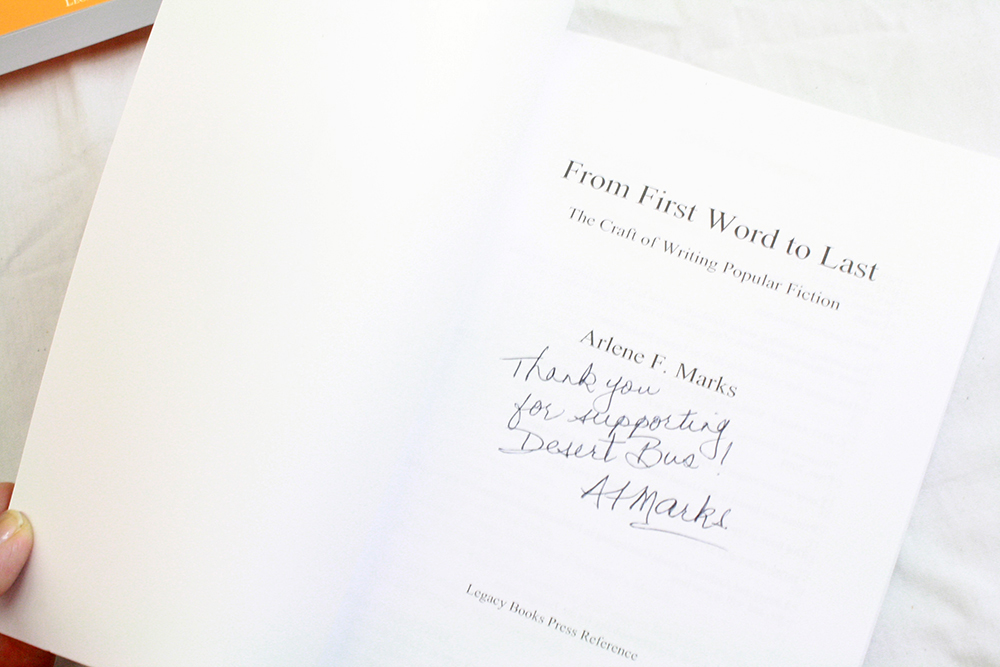 From First Word to Last
The Craft of Writing Popular Fiction
Arlene F. Marks
Thank you
for supporting
Desert Bus!
AFMarks
Legacy Books Press Reference